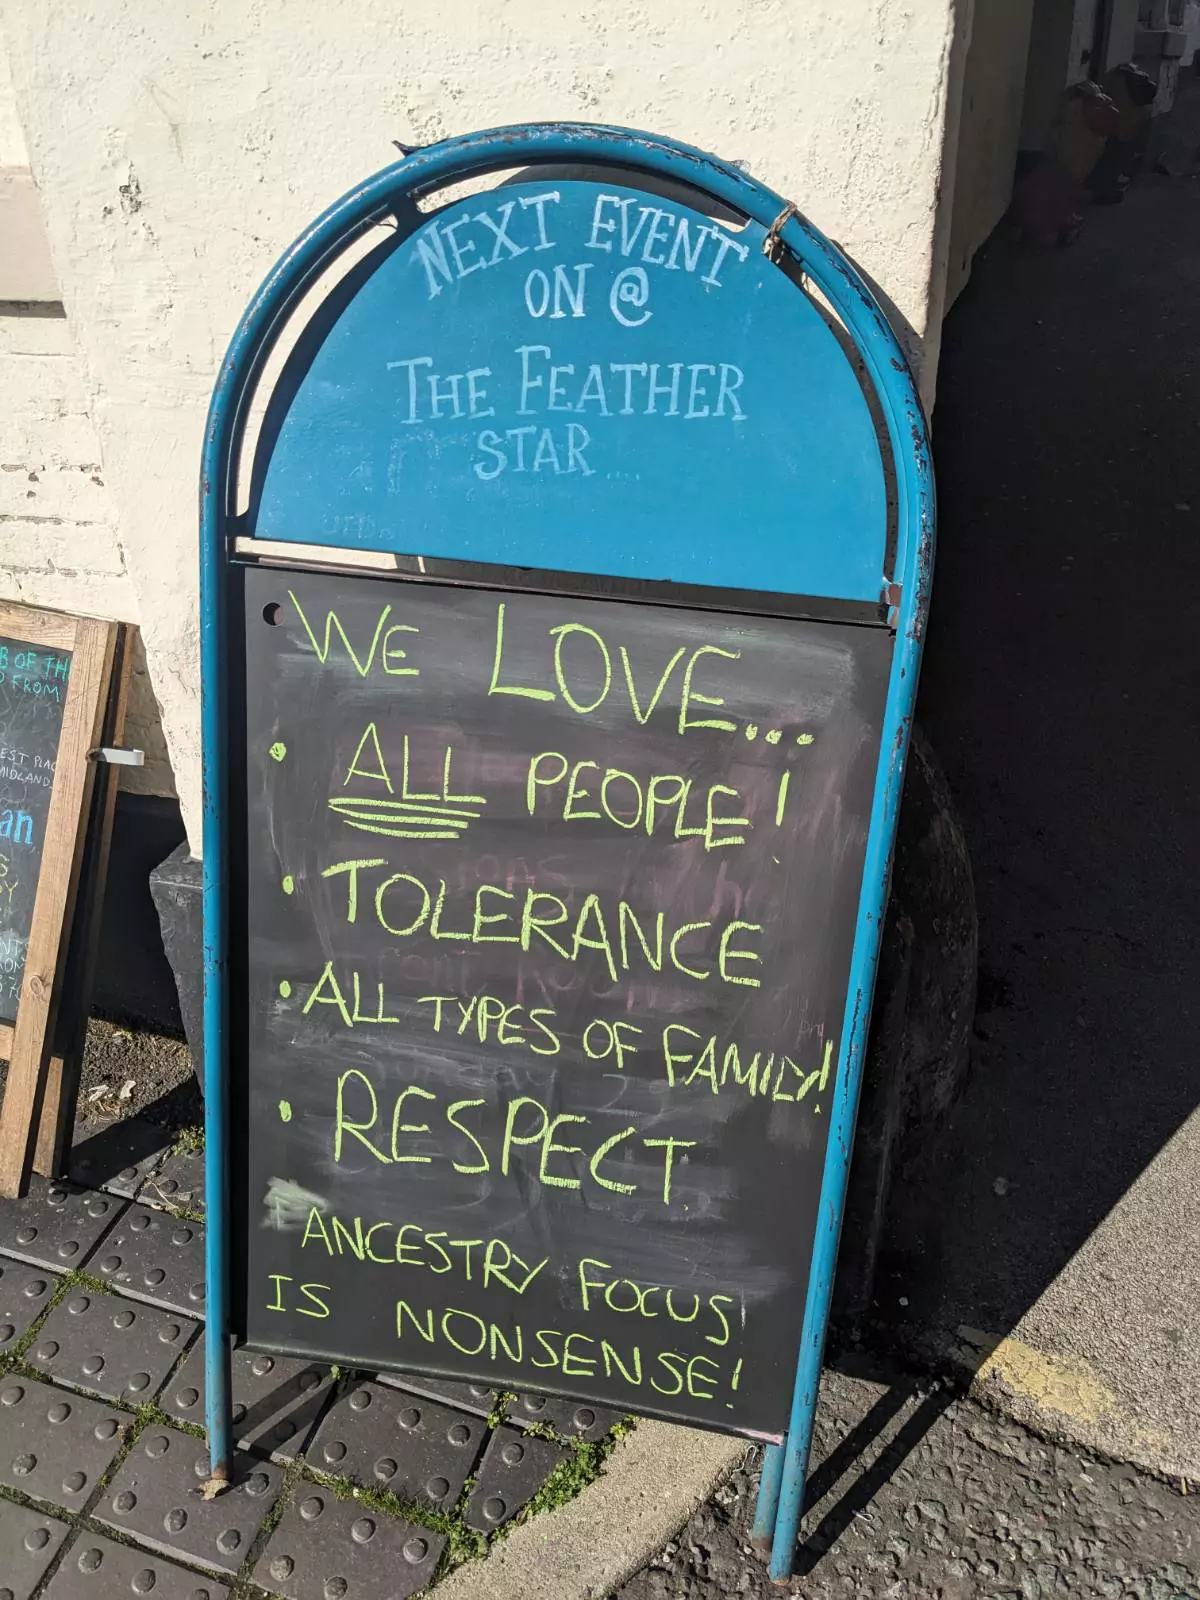 NEXT EVENT
ON @
THE FEATHER
STAR....
WE LOVE...
• ALL PEOPLE!
• TOLERANCE
• ALL TYPES OF FAMILY!
• RESPECT
ANCESTRY FOCUS
IS NONSENSE!
OF TH
FROM
EST PLAC
MIDLAND
an